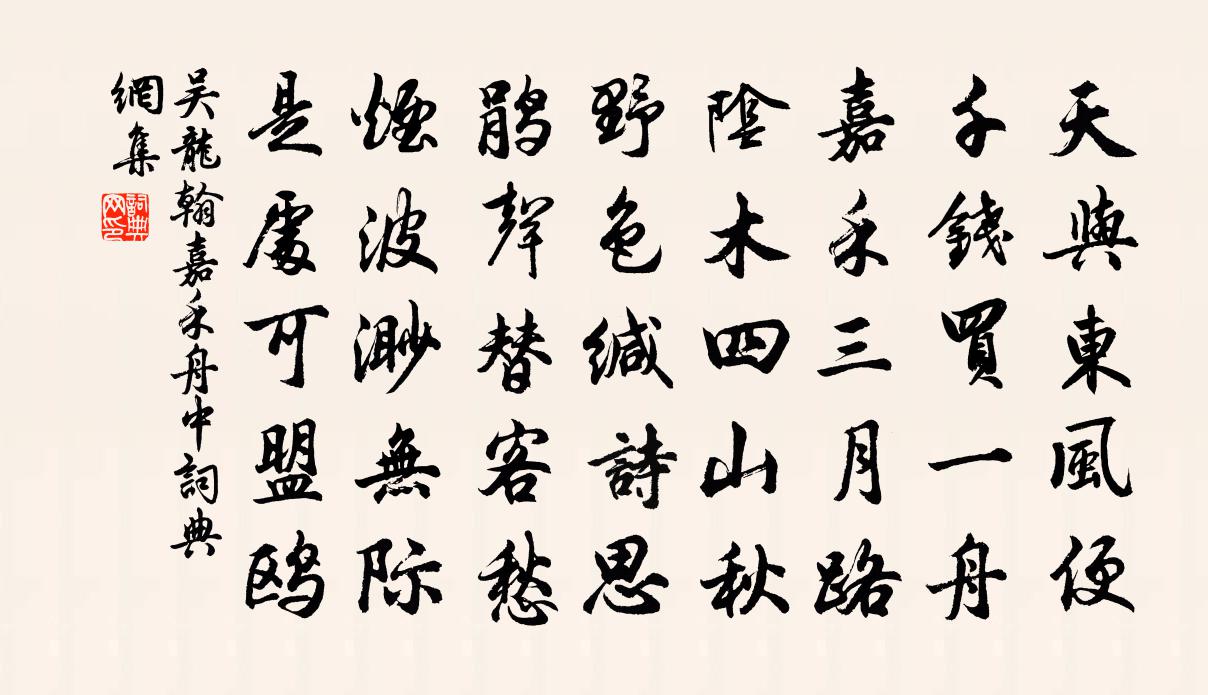 天與東風便
千錢買一舟
嘉禾三月路
陰木四山秋
野色緘詩思
鹃聲替客愁
煙波渺無际
是處可盟鸥
吴龍翰嘉禾舟中詞典
網集
詞典網印